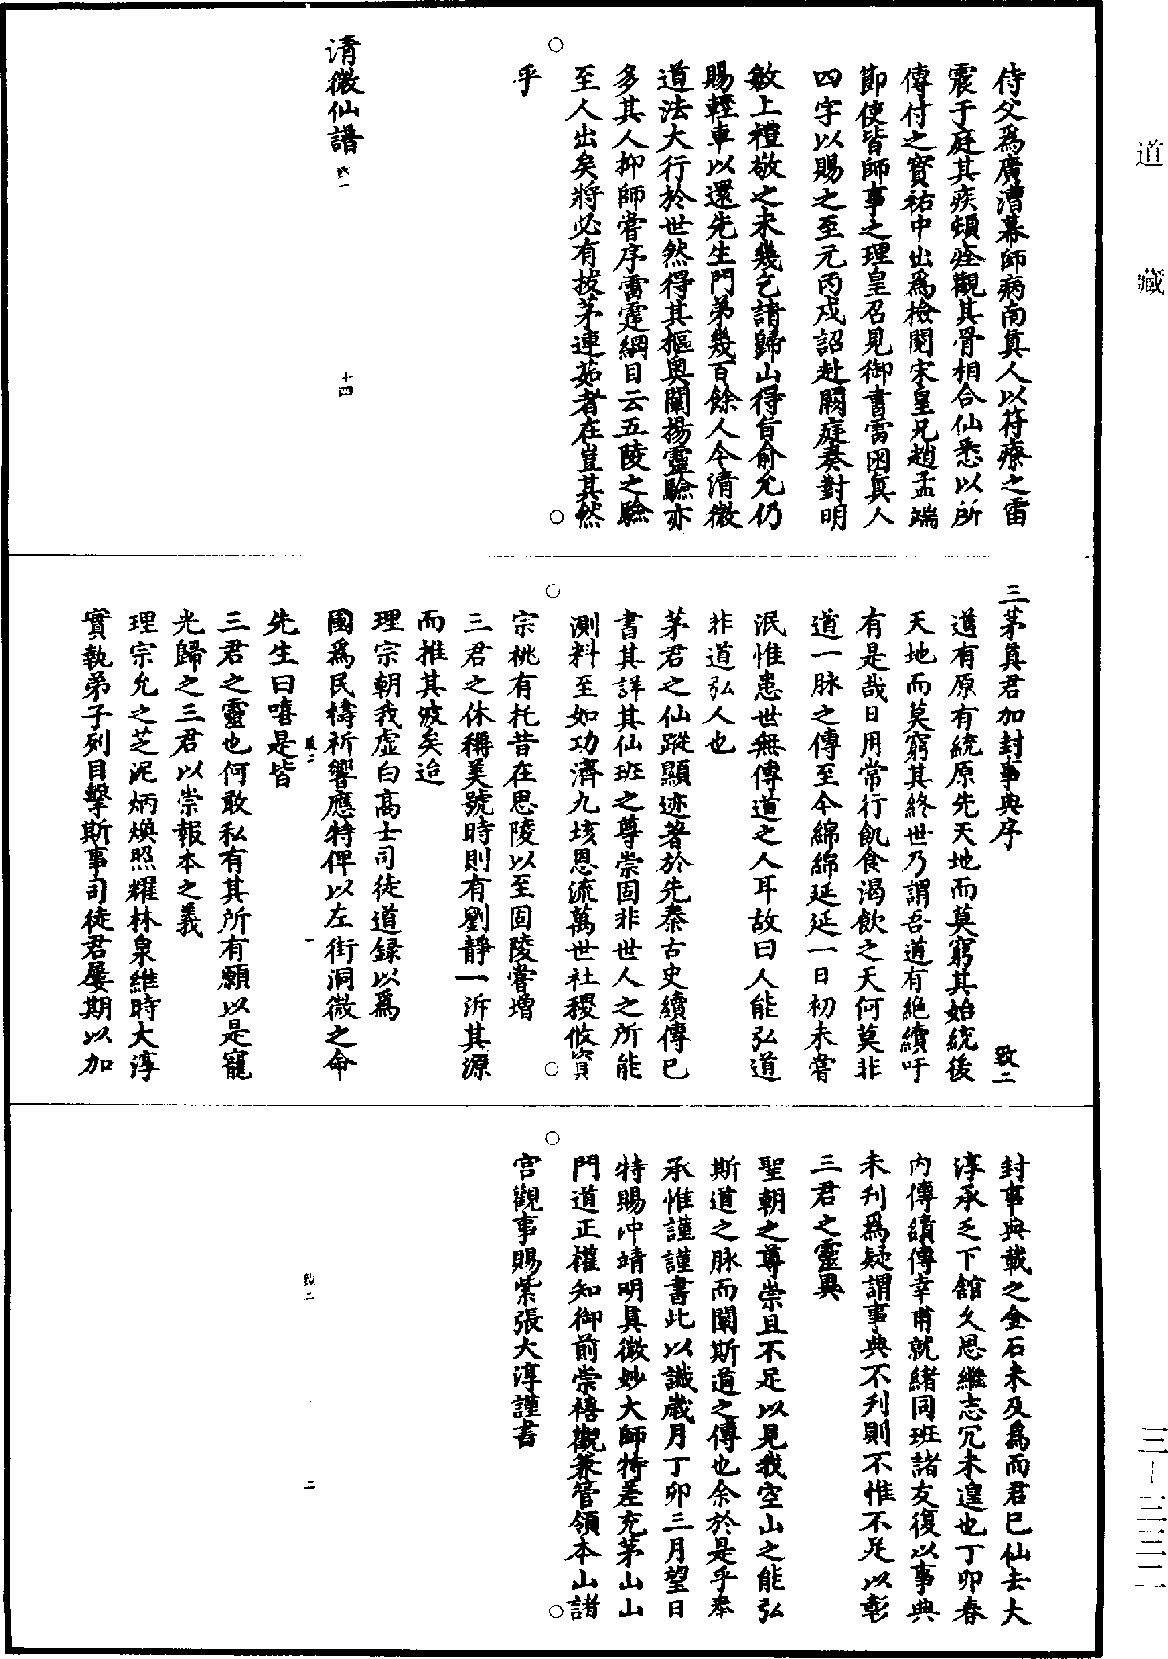 道藏
侍父爲廣漕幕師病南真人以符療之雷
震于庭其疾頓痊觀其骨相合仙悉以所
傳付之寳祐中出爲檢閱宋皇兄趙孟端
節使皆師事之理皇召見御書雷囦真人
四字以賜之至元丙戍詔赴闕庭奏對明
敏上禮敬之未幾乞請歸山得旨俞允仍
賜輕車以還先生門弟幾百餘人今清微
道法大行於世然得其樞奥闡揚靈驗亦
多其人抑師嘗序雷霆綱目云五陵之驗
至人出矣將必有拔茅連茹者在豈其然
乎
清微仙譜 致一 十四
三茅真君加封事典序 致二
道有原有統原先天地而莫窮其始統後
天地而莫窮其終世乃謂吾道有絶續吁
有是哉日用常行飢食渴飲之天何莫非
道一脉之傳至今綿綿延延一日初未嘗
泯惟患世無傳道之人耳故曰人能弘道
非道弘人也
茅君之仙蹤顯迹著於先秦古史續傳已
書其詳其仙班之尊崇固非世人之所能
測料至如功濟九垓恩流萬世社稷攸資
宗祧有托昔在思陵以至固陵嘗增
三君之休稱美號時則有劉靜一泝其源
而推其波矣迨
理宗朝我虚白高士司徒道録以爲
國爲民禱祈響應特俾以左街洞微之命
致二 一
先生曰嘻是皆
三君之靈也何敢私有其所有願以是寵
光歸之三君以崇報本之義
理宗允之芝泥炳煥照耀林泉維時大淳
實執弟子列目擊斯事司徒君屢期以加
封事典載之金石未及爲而君已仙去大
淳承乏下館久思繼志冗未遑也丁卯春
内傳續傳幸甫就緒同班諸友復以事典
未刋爲疑謂事典不刋則不惟不足以彰
三君之靈異
聖朝之尊崇且不足以見我空山之能弘
斯道之脉而闡斯道之傳也余於是乎奉
承惟謹謹書此以識歲月丁卯三月望日
特賜冲靖明真微妙大師特差充茅山山
門道正權知御前崇禧觀兼管領本山諸
宫觀事賜紫張大淳謹書
致二 二
三-三三二